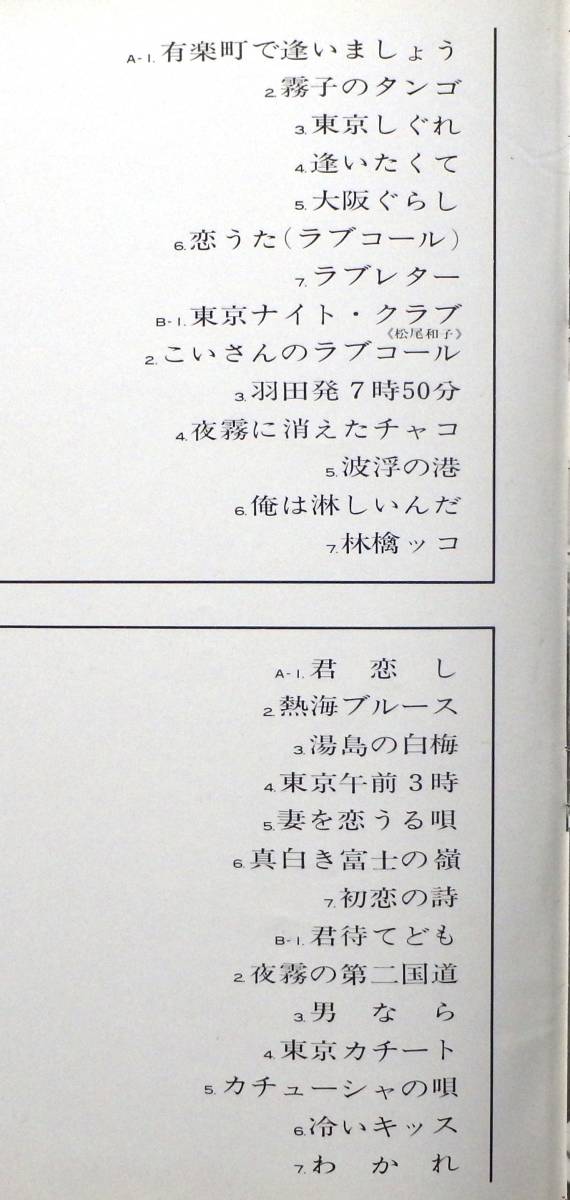 A-1. 有楽町で逢いましょう
2. 霧子のタンゴ
3. 東京しぐれ
4. 逢いたくて
5. 大阪ぐらし
6. 恋うた(ラブコール)
7. ラブレター
B-1. 東京ナイト・クラブ
《松尾和子》
2. こいさんのラブコール
3. 羽田発7時50分
4. 夜霧に消えたチャコ
5. 波浮の港
6. 俺は淋しいんだ
7. 林檎ッコ
A-1. 君恋し
2. 熱海ブルース
3. 湯島の白梅
4. 東京午前3時
5. 妻を恋うる唄
6. 真白き富士の嶺
7. 初恋の詩
B-1. 君待てども
2. 夜霧の第二国道
3. 男なら
4. 東京カチート
5. カチューシャの唄
6. 冷いキッス
7. わかれ